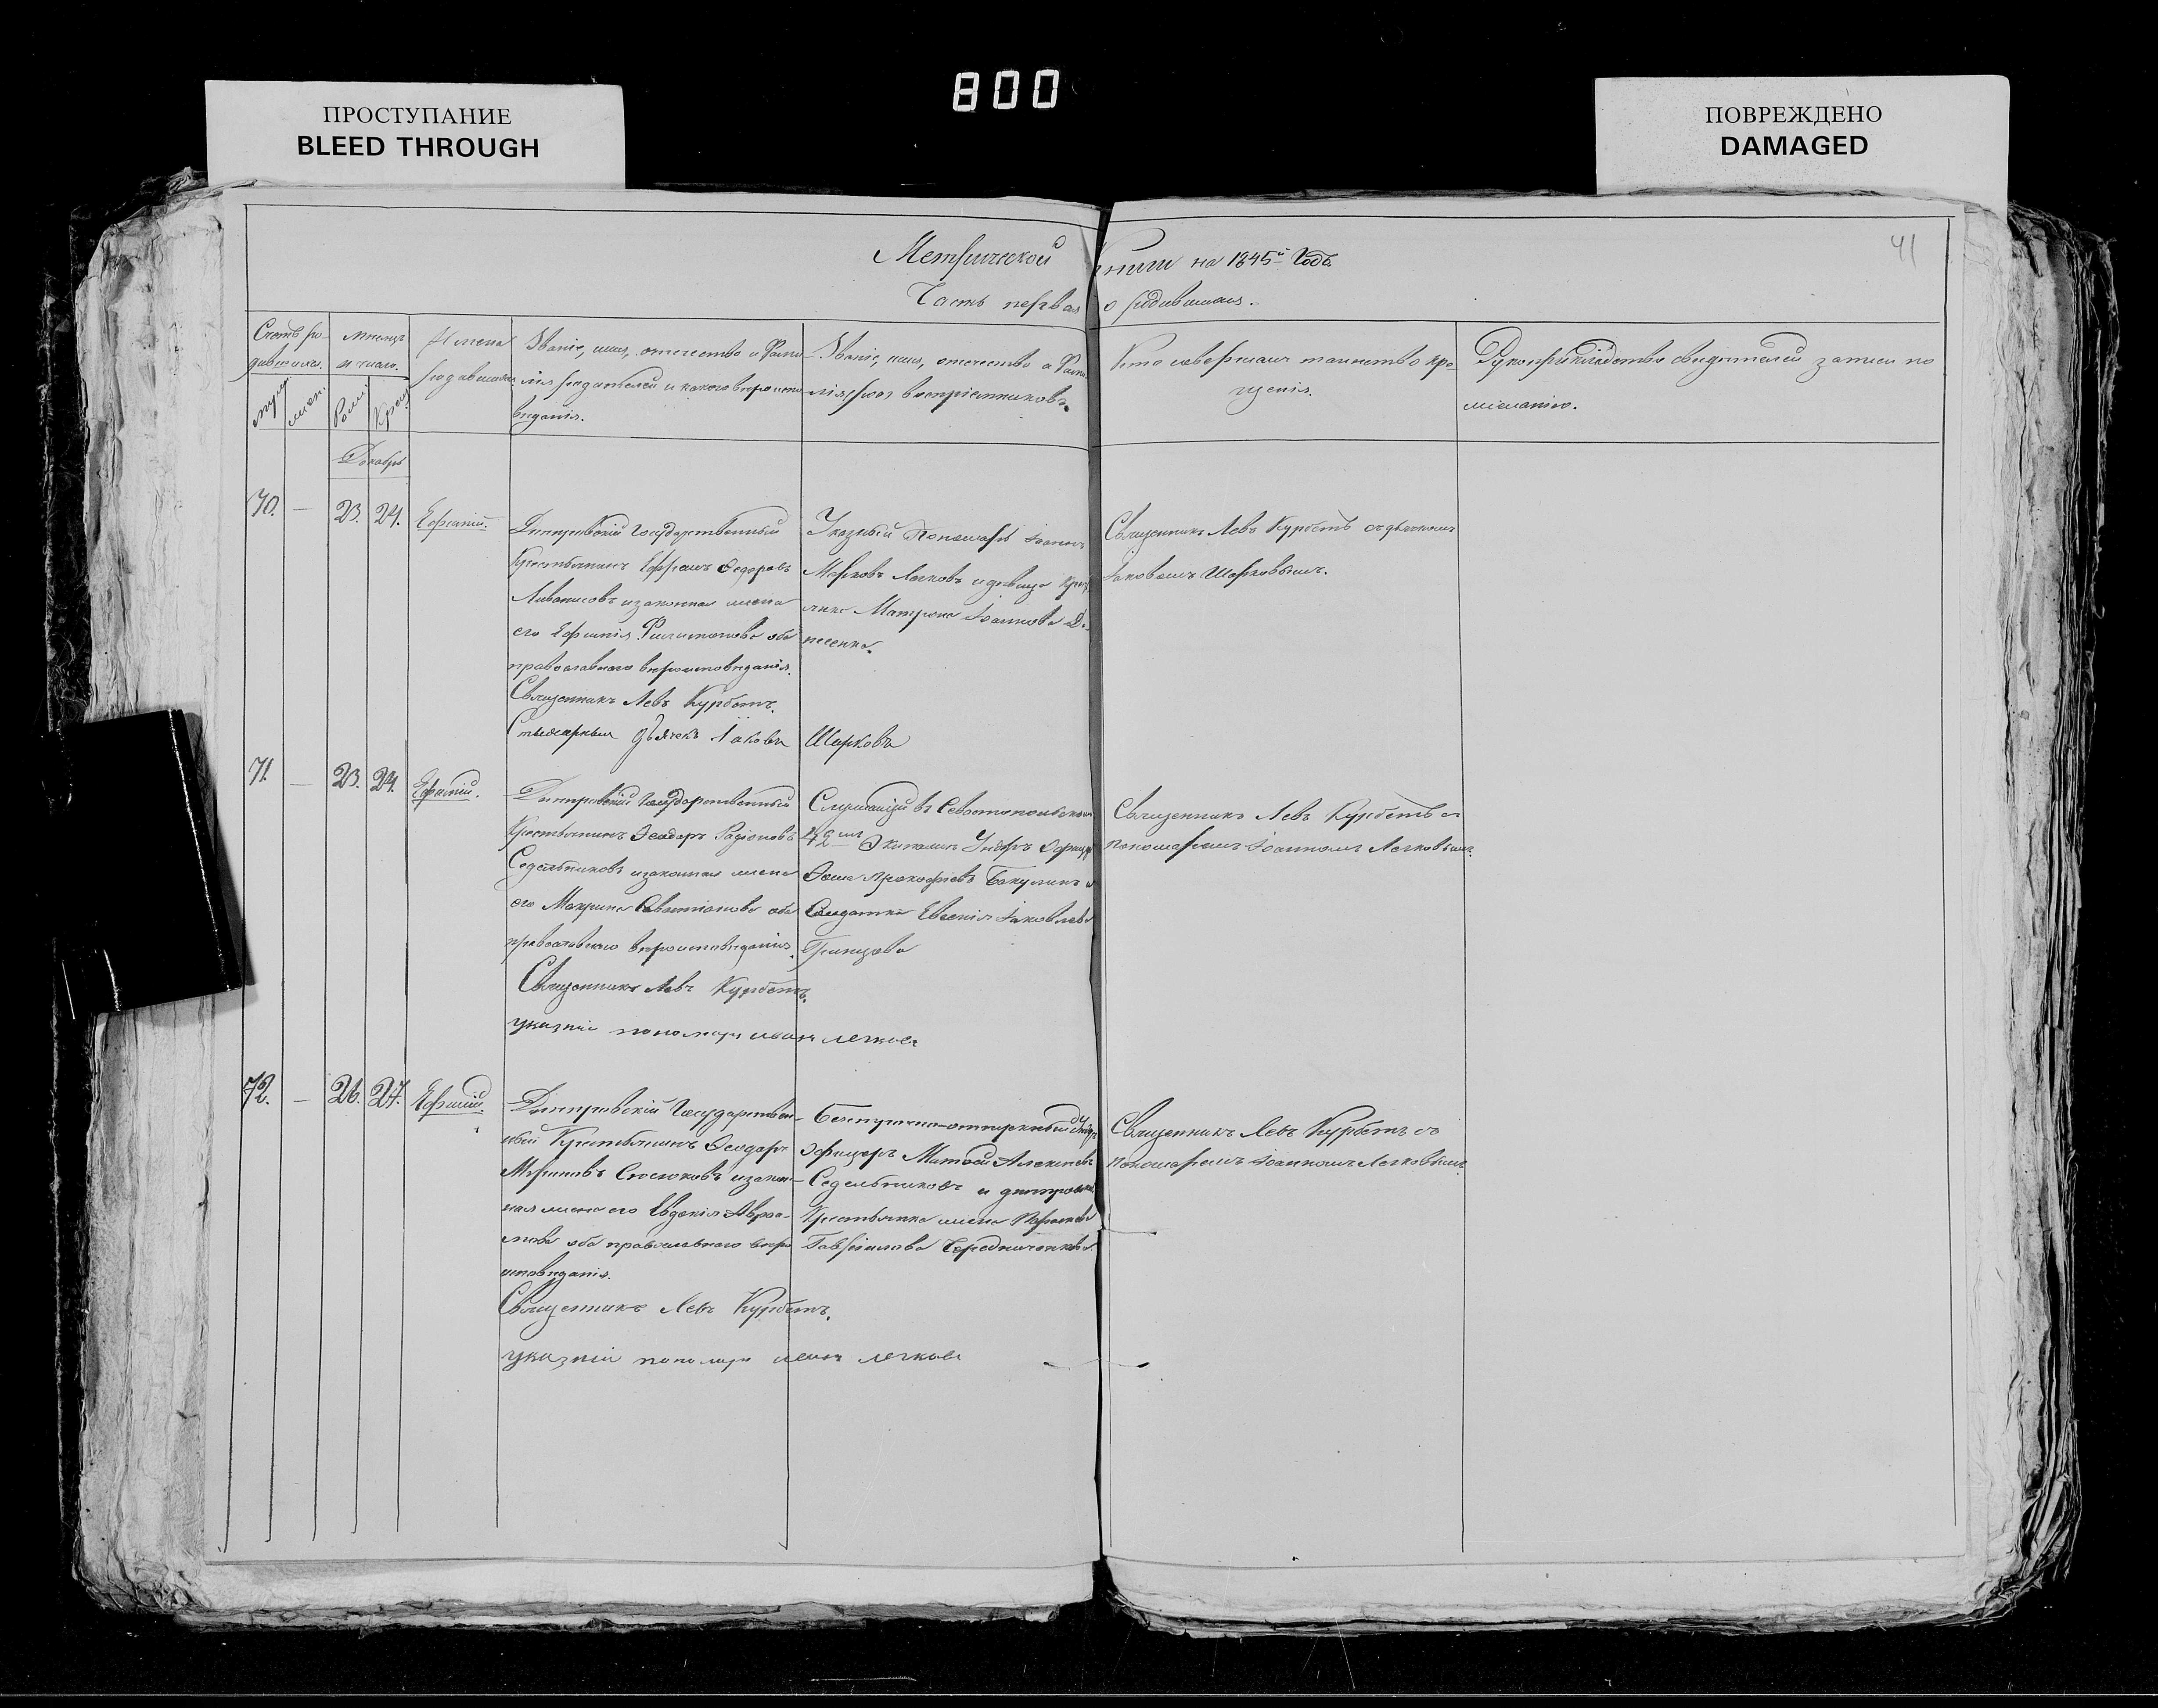 800
ПРОСТУПАНИЕ
BLEED THROUGH
ПОВРЕЖДЕНО
DAMAGED
41
Метрической книги на 1845й Годъ
Часть первая о родившихся.
Счетъ родившихся.
Мѣсяцъ и число.
Имена родившихся
Званіе, имя, отчество и Фамилія родителей и какого вѣроисповѣданія.
Званіе, имя, отчество и Фамилія воспріемниковъ.
Кто совершалъ таинство крещенія.
Рукоприкладство свидѣтелей записи по
Декабрь
70. — 23. 24. Ефимій.
Днепровскій Государственный
Крестьянинъ Ефремъ Ѳедоровъ
и законная жена
его Ефимія оба
православнаго вѣроисповѣданія.
Священникъ Левъ Курбетъ.
дьячекъ Іаковъ Шарковъ
Указный Пономарь Іоаннъ
Марковъ Легковъ и девица
Матрона Іоаннова
Священникъ Левъ Курбетъ съ дьячкомъ
Іаковомъ Шарковымъ.
71. — 23. 24. Ефимій.
Днепровскій Государственный
Крестьянинъ Ѳеодоръ Родіоновъ
Седельниковъ и законная жена
его Макрина оба
православнаго вѣроисповѣданія.
Священникъ Левъ Курбетъ.
указній пономарь иванъ легковъ
Служащій въ Севастопольскомъ
42мъ Экипажѣ Унтеръ Офицеръ
Ѳома Прокофіевъ Бакулинъ и
Солдатка Евгенія Іаковлева
Священникъ Левъ Курбетъ съ
пономаремъ Іоанномъ Легковымъ.
72. — 26. 27. Ефимій.
Днепровскій Государствен-
ный Крестьянинъ Ѳеодоръ
и закон-
ная жена его Евдокія Авра-
мова оба православнаго вѣро
исповѣданія.
Священникъ Левъ Курбетъ.
указній пономарь иванъ легковъ
Унтеръ
Офицеръ Матвей Алексѣевъ
Седельниковъ и днепровская
Крестьянка жена
Гаврилова Чередниченкова
Священникъ Левъ Курбетъ съ
пономаремъ Іоанномъ Легковымъ.